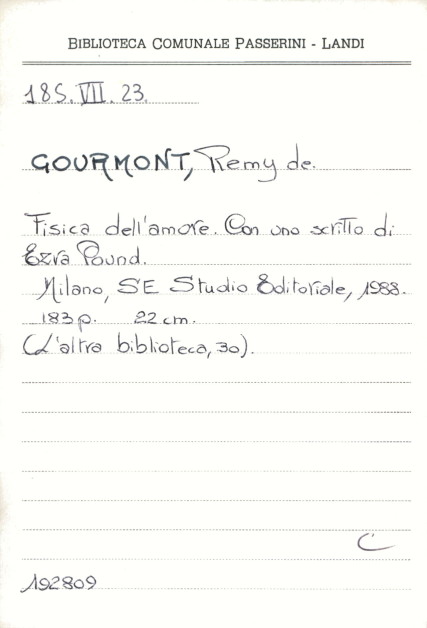 BIBLIOTECA COMUNALE PASSERINI - LANDI
18S.VII.23.
GOURMONT, Remy de.
Fisica dell'amore. Con uno scritto di
Ezra Pound.
Milano, SE Studio Editoriale, 1988.
183 p. 22 cm.
(L'altra biblioteca, 30).
C
192809